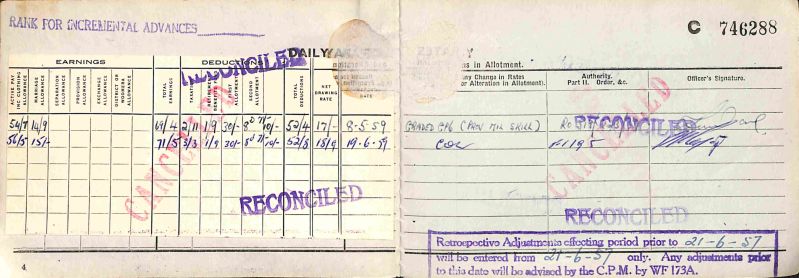 RANK FOR INCREMENTAL ADVANCES
C 746288
DAILY
EARNINGS
DEDUCTIONS
ACTIVE PAY INC CLOTHING ALLOWANCE
MARRIAGE ALLOWANCE
SEPARATION ALLOWANCE
PROVISION ALLOWANCE
EXCHANGE ALLOWANCE
DISTRICT OR WOOMERA ALLOWANCE
TOTAL EARNINGS
TAXATION
FIRST ALLOTMENT
SECOND ALLOTMENT
TOTAL DEDUCTIONS
NET DRAWING RATE
RATE
54/7 14/9 69/4 2/11 1/9 30/- 8d 7/- 10/- 52/4 17/- 8-5-59
56/5 15/- 71/5 3/3 1/9 30/- 8d 7/- 10/- 52/8 18/9 19-6-59
RECONCILED
CANCELLED
RECONCILED
4
es in Allotment.
ny Change in Rates
or Alteration in Allotment).
Authority.
Part II. Order, &c.
Officer's Signature.
GRADED GP6 (PROV MIL SKILL)
COL F1195
RECONCILED
CANCELLED
RECONCILED
Retrospective Adjustments effecting period prior to 21-6-57
will be entered from 21-6-57 only. Any adjustments prior
to this date will be advised by the C.P.M. by WF 173A.